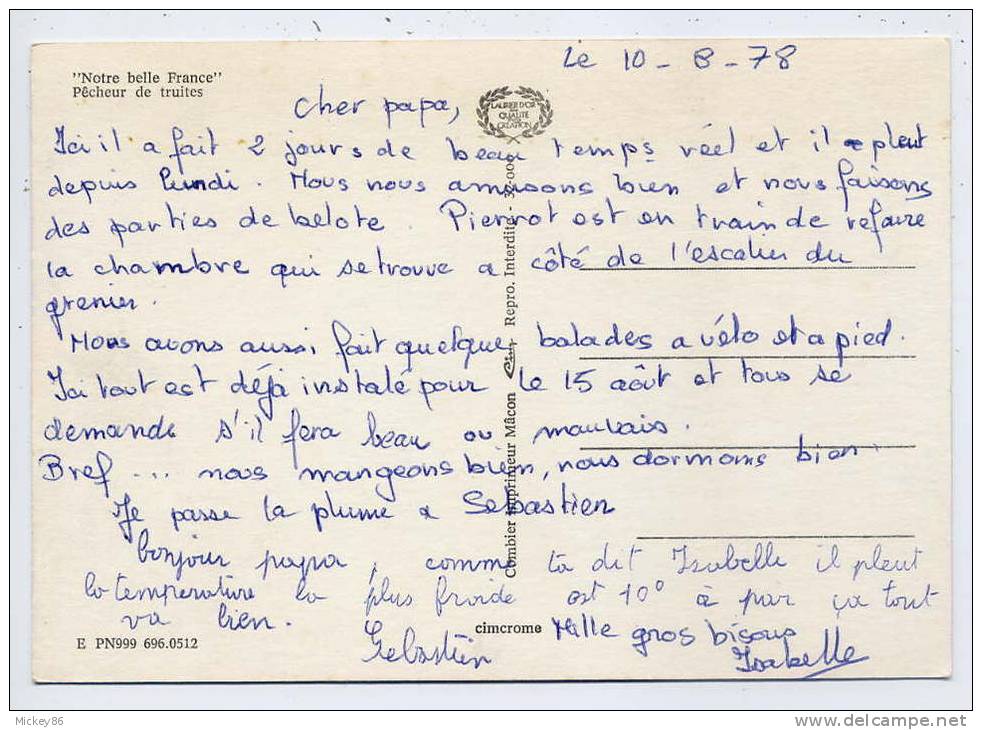 "Notre belle France"
Pêcheur de truites
Le 10 - 8 - 78
LAURIER D'OR
QUALITÉ
CRÉATION
Cher papa,
Ici il a fait 2 jours de beau temps réel et il pleut
depuis lundi. Nous nous amusons bien et nous faisons
des parties de belote. Pierrot est en train de refaire
la chambre qui se trouve a côté de l'escalier du
grenier.
Nous avons aussi fait quelque balades a vélo et a pied.
Ici tout est déjà instalé pour le 15 août et tous se
demande s'il fera beau ou mauvais.
Bref ... nous mangeons bien, nous dormons bien.
Je passe la plume a Sebastien
bonjour papa, comme ta dit Isabelle il pleut
la temperature la plus froide est 10° à par ça tout
va bien.
Sebastien
Mille gros bisous
Isabelle
Combier Imprimeur Mâcon Cim Repro. Interdite -
cimcrome
E PN999 696.0512
Mickey86
www.delcampe.net